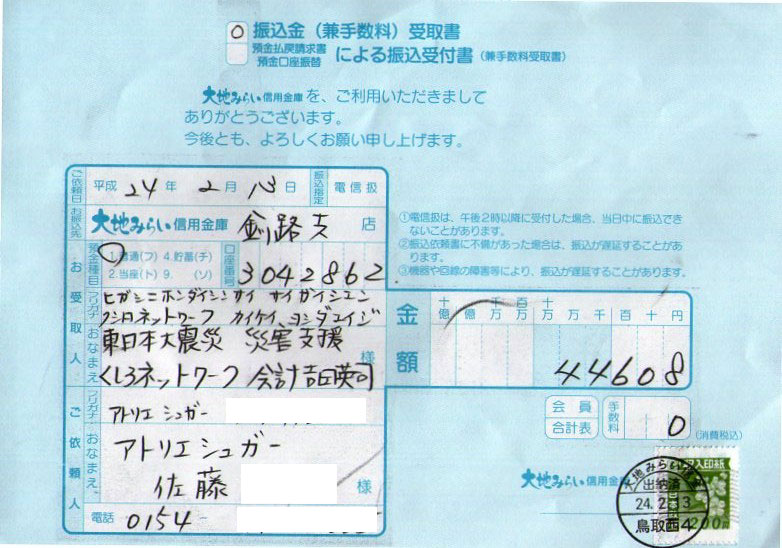 振込金（兼手数料）受取書
預金払戻請求書
預金口座振替
による振込受付書（兼手数料受取書）
大地みらい信用金庫を、ご利用いただきまして
ありがとうございます。
今後とも、よろしくお願い申し上げます。
ご依頼日 平成 24年 2月 13日 振込指定 電信扱
お振込先 大地みらい信用金庫 釧路支 店
預金種目 1.普通(フ) 4.貯蓄(チ)
2.当座(ト) 9. (ソ)
口座番号 3042862
お受取人
フリガナ ヒガシニホンダイシンサイ サイガイシエン
クシロネットワーク カイケイ ヨシダエイジ
おなまえ 東日本大震災 災害支援
くしろネットワーク 会計吉田英司 様
①電信扱は、午後2時以降に受付した場合、当日中に振込でき
ないことがあります。
②振込依頼書に不備があった場合は、振込が遅延することがあ
ります。
③機器や回線の障害等により、振込が遅延することがあります。
金額 十億 億 千万 百万 十万 万 千 百 十 円
44608
会員
合計表
手数料 十 0 (消費税込)
ご依頼人
フリガナ アトリエ シュガー
おなまえ アトリエシュガー
佐藤 様
電話 0154-
大地みらい信用金庫
大地みらい
出納済
鳥取西4
収入印紙
200